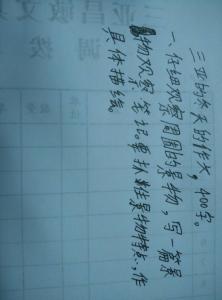 三亚的冬天的作文，400字。
一、仔细观察周围的景物，写一篇景
物观察笔记。要抓住景物特点，作
具体描绘。